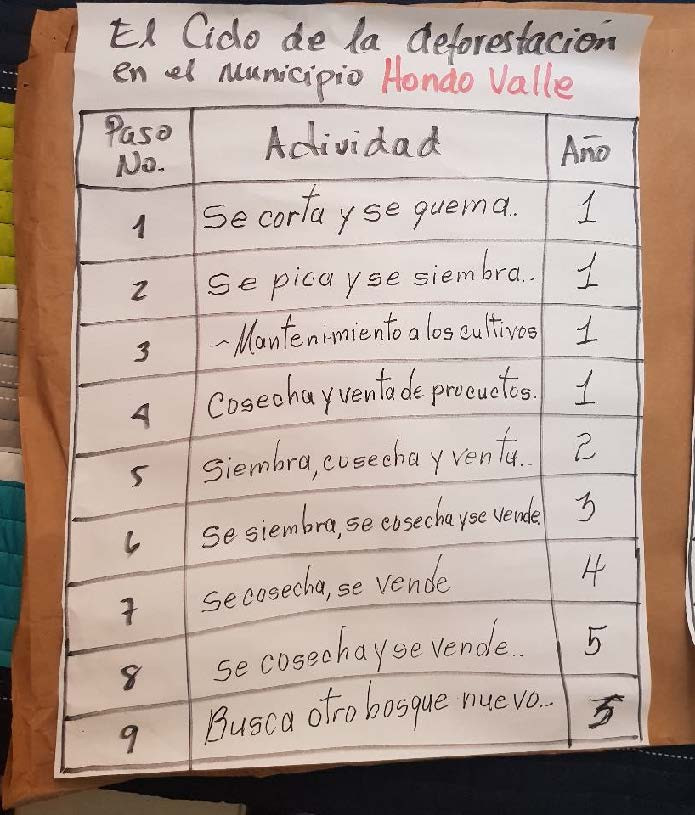 El Ciclo de la deforestación
en el Municipio Hondo Valle
Paso No. Actividad Año
1 Se corta y se quema. 1
2 Se pica y se siembra.. 1
3 - Mantenimiento a los cultivos 1
4 Cosecha y venta de productos. 1
5 Siembra, cosecha y venta.. 2
6 Se siembra, se cosecha y se vende. 3
7 Se cosecha, se vende 4
8 Se cosecha y se vende.. 5
9 Busca otro bosque nuevo... 5